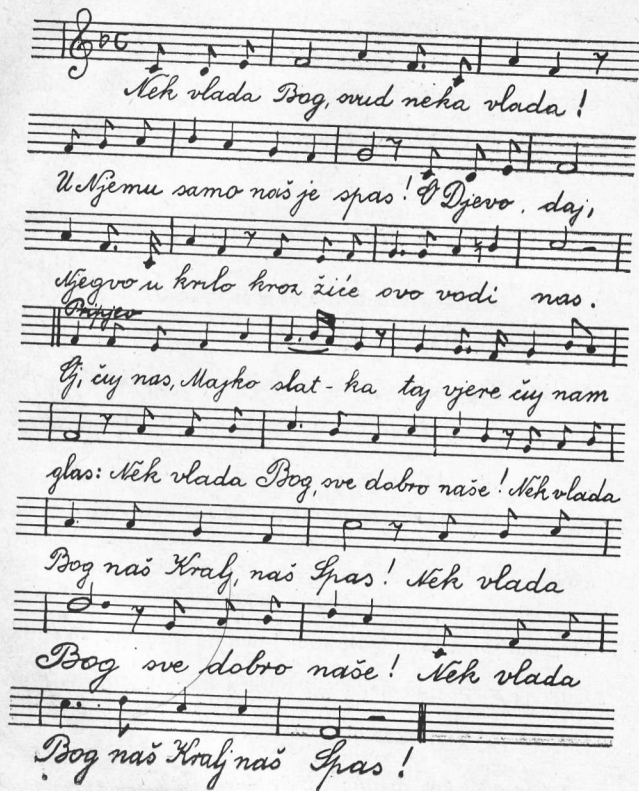 Nek vlada Bog, svud neka vlada!
U Njemu samo naš je spas! O Djevo, daj,
Njegvo u krilo kroz žiće svo vodi nas.
Pripjev
Oj, čuj nas, Majko slat-ka taj vjere čuj nam
glas: Nek vlada Bog, sve dobro naše! Nek vlada
Bog naš Kralj, naš Spas! Nek vlada
Bog sve dobro naše! Nek vlada
Bog naš Kralj naš Spas!